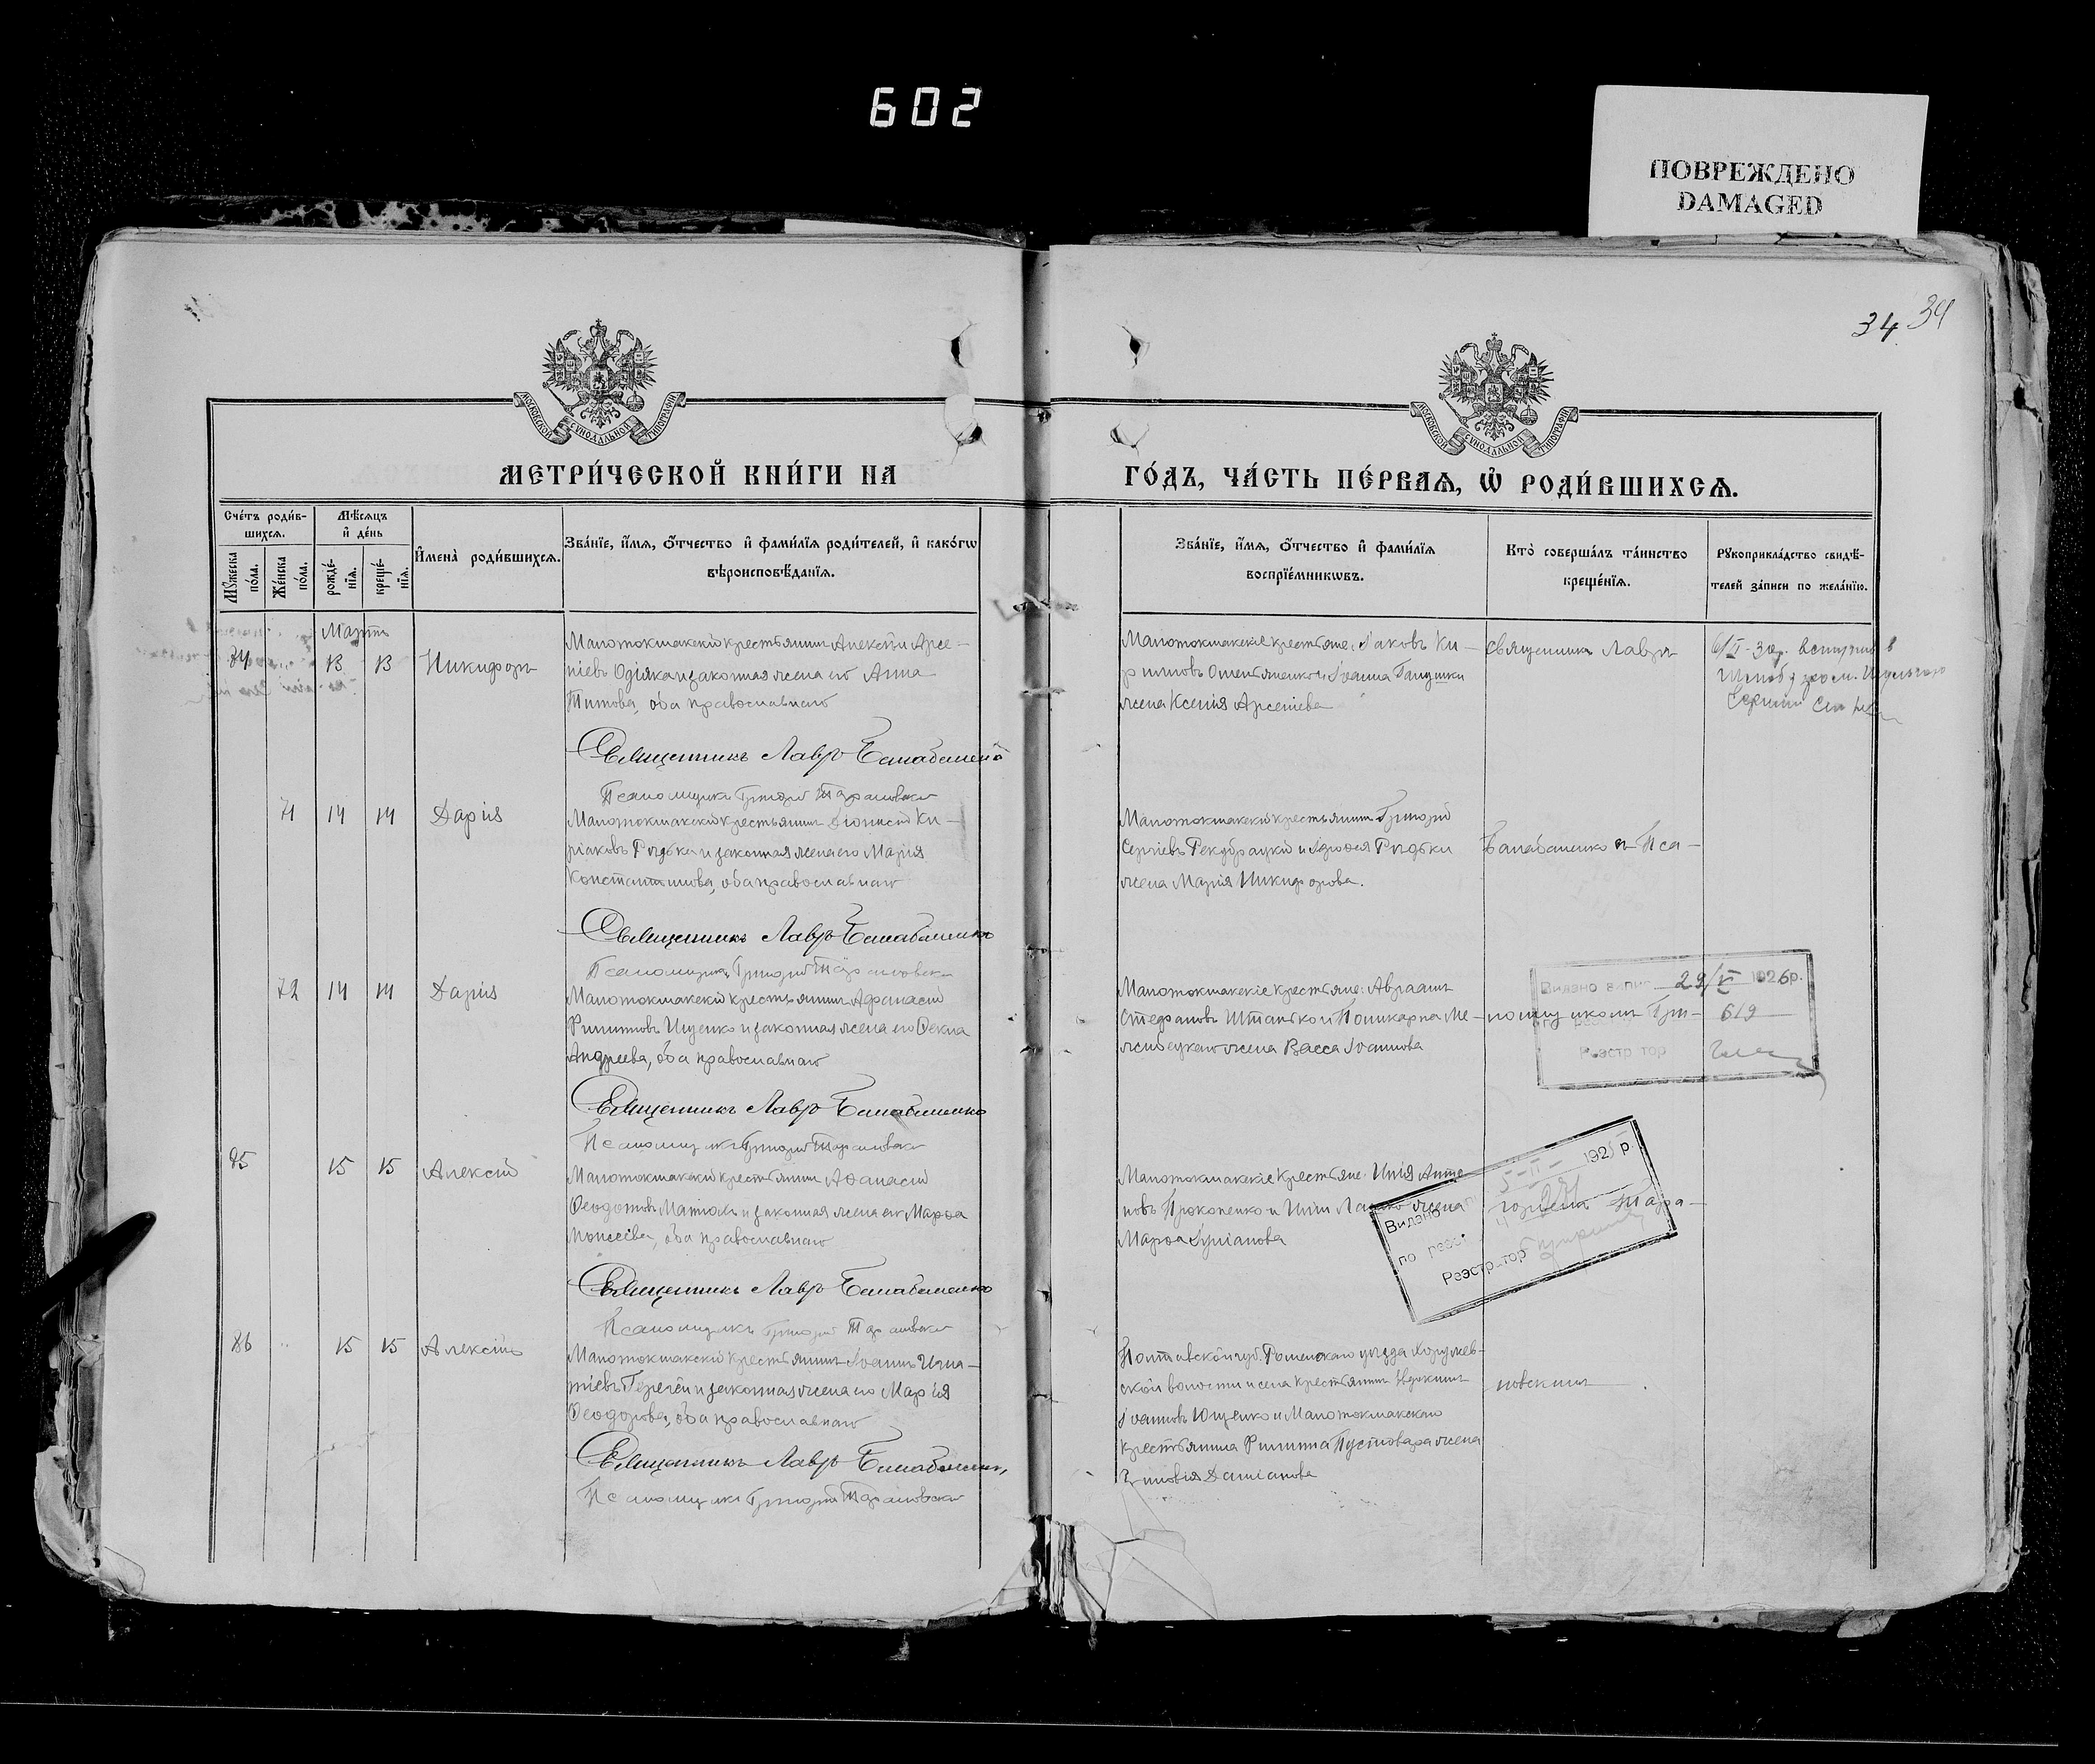 602
ПОВРЕЖДЕНО
DAMAGED
34 34
МОСКОВСКОЙ СѴНОДАЛЬНОЙ ТИПОГРАФИИ
МОСКОВСКОЙ СѴНОДАЛЬНОЙ ТИПОГРАФИИ
МЕТРИ́ЧЕСКОЙ КНИ́ГИ НА
ГО́ДЪ, ЧА́СТЬ ПЕ́РВАѦ, Ѡ҆ РОДИ́ВШИХСѦ.
Сче́тъ роди́в-
шихсѧ.
Мꙋ́жеска по́ла.
Же́нска по́ла.
Мѣ́сѧцъ
и҆ де́нь
рожде́-
нїѧ.
креще́-
нїѧ.
И҆мена̀ роди́вшихсѧ.
Зва́нїе, и҆́мѧ, ѻ҆́тчество и҆ фами́лїѧ роди́телей, и҆ како́гѡ
вѣроисповѣ́данїѧ.
Зва́нїе, и҆́мѧ, ѻ҆́тчество и҆ фами́лїѧ
воспрїе́мникѡвъ.
Кто̀ соверша́лъ та́инство
креще́нїѧ.
Рꙋкоприкла́дство свидѣ́-
телей за́писи по жела́нїю.
Мартъ
13 13 Никифоръ
Малотокмакскій крестьянинъ Алексѣй Арсе-
ніевъ и законная жена его Анна
Титова, оба православнаго
Священникъ Лавръ Балабаненко
Псаломщикъ Григорій Тарановскій
Малотокмакскіе крестьяне: Іаковъ Ки-
рилловъ и Іоанна
жена Ксенія Арсеніева
Священникъ Лавръ
71 14 14 Дарія
Малотокмакскій крестьянинъ Діонисій Ки-
ріаковъ Рыдька и законная жена его Марія
Константинова, оба православнаго
Священникъ Лавръ Балабаненко
Псаломщикъ Григорій Тарановскій
Малотокмакскій крестьянинъ Григорій
Сергіевъ и Рыдьки
жена Марія Никифорова.
Балабаненко съ Пса-
72 14 14 Дарія
Малотокмакскій крестьянинъ Афанасій
Филипповъ Ищенко и законная жена его Ѳекла
Андреева, оба православнаго
Священникъ Лавръ Балабаненко
Псаломщикъ Григорій Тарановскій
Малотокмакскіе крестьяне: Авраамъ
Стефановъ Штанько и Поликарпа Ме-
жена Васса Іоаннова
ломщикомъ Гри-
Видано випис 29/VI 1926р.
619
Реэстратор
85 15 15 Алексій
Малотокмакскій крестьянинъ Аѳанасій
Ѳеодотовъ и законная жена его Марѳа
Моисеева, оба православнаго
Священникъ Лавръ Балабаненко
Псаломщикъ Григорій Тарановскій
Малотокмакскіе крестьяне: Илія Анто-
новъ Прокопенко и жена
Марѳа Іуліанова
горіемъ Тара-
Видано 192 р.
по реэст
Реэстратор
86 15 15 Алексій
Малотокмакскій крестьянинъ Іоаннъ Игна-
тіевъ и законная жена его Марія
Ѳеодорова, оба православнаго
Священникъ Лавръ Балабаненко
Псаломщикъ Григорій Тарановскій
Полтавской губ. Роменскаго уѣзда
ской волости и села крестьянинъ Евдокимъ
Іоанновъ Ющенко и Малотокмакскаго
крестьянина Филиппа Пустовара жена
Зиновія Даміанова
новскимъ